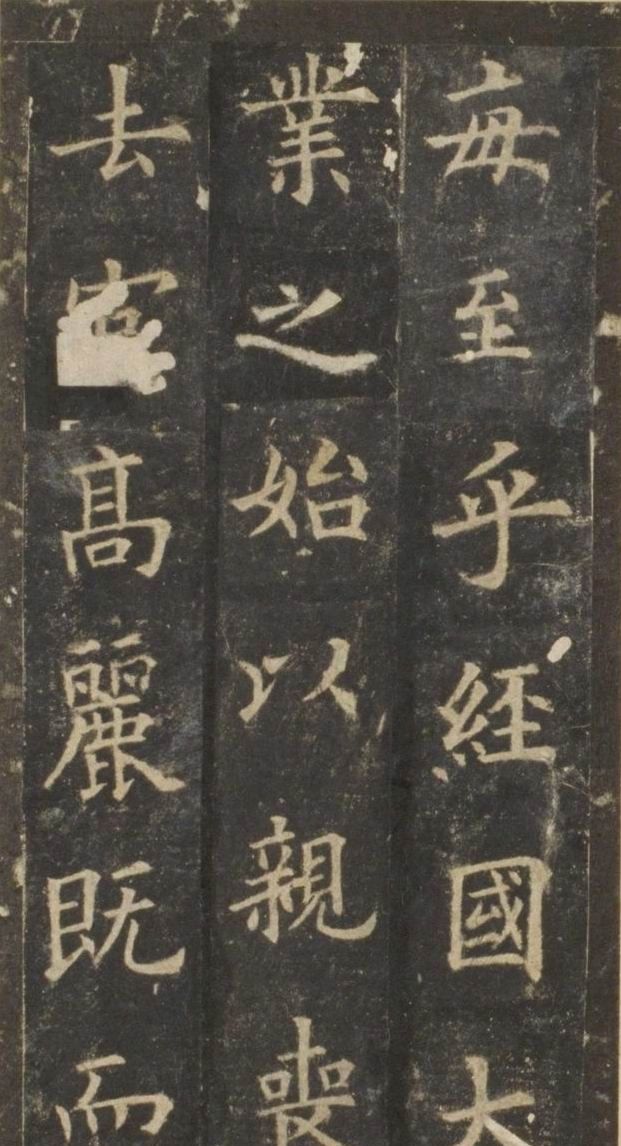 每至乎經國大
業之始以親喪
去高麗既而